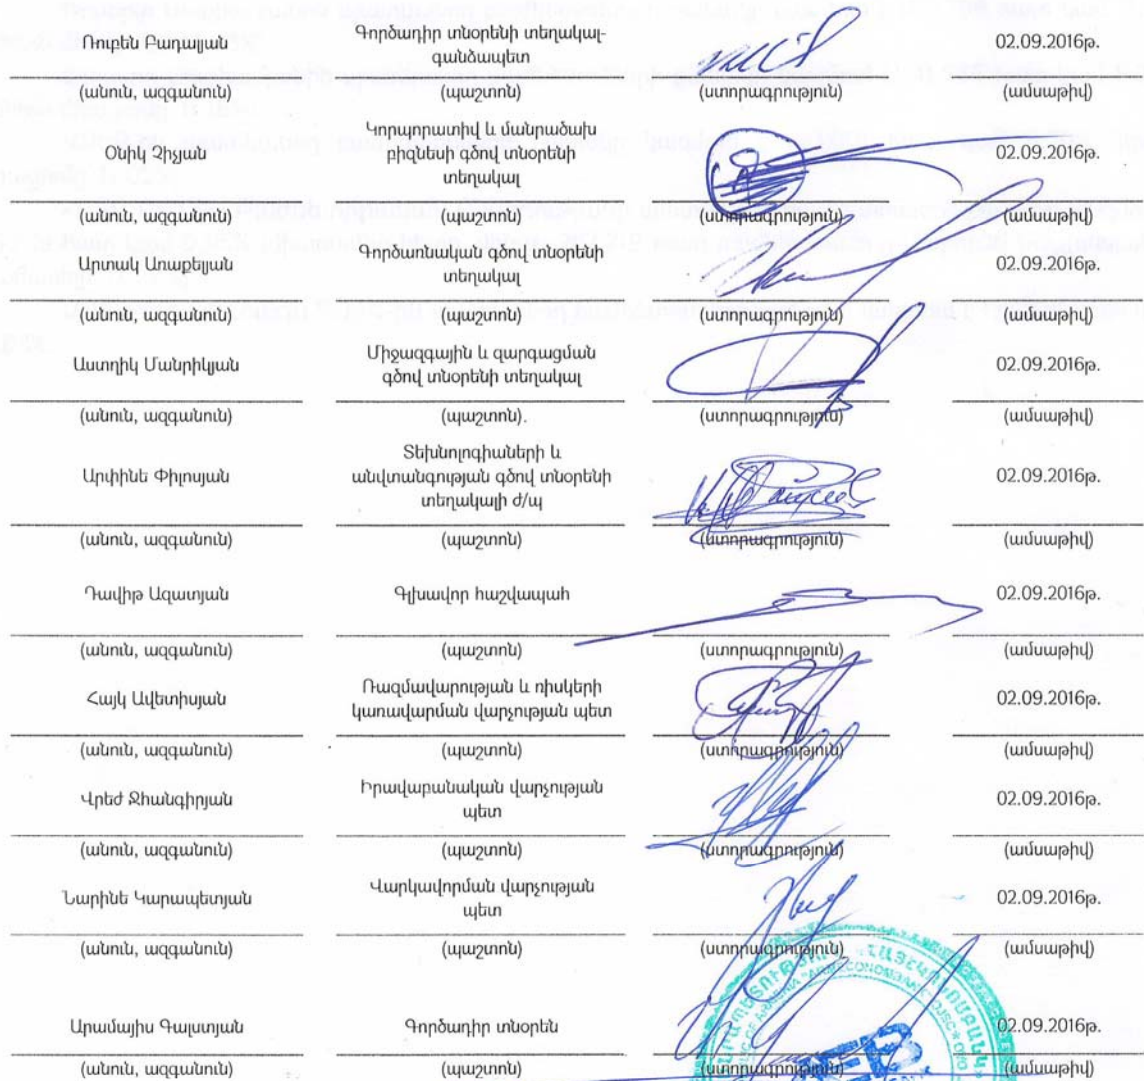 Ռուբեն Բադալյան
Գործադիր տնօրենի տեղակալ-
գանձապետ
02.09.2016թ.
(անուն, ազգանուն) (պաշտոն) (ստորագրություն) (ամսաթիվ)
Օնիկ Չիչյան
Կորպորատիվ և մանրածախ
բիզնեսի գծով տնօրենի
տեղակալ
02.09.2016թ.
(անուն, ազգանուն) (պաշտոն) (ստորագրություն) (ամսաթիվ)
Արտակ Առաքելյան
Գործառնական գծով տնօրենի
տեղակալ
02.09.2016թ.
(անուն, ազգանուն) (պաշտոն) (ստորագրություն) (ամսաթիվ)
Աստղիկ Մանրիկյան
Միջազգային և զարգացման
գծով տնօրենի տեղակալ
02.09.2016թ.
(անուն, ազգանուն) (պաշտոն). (ստորագրություն) (ամսաթիվ)
Արփինե Փիլոսյան
Տեխնոլոգիաների և
անվտանգության գծով տնօրենի
տեղակալի ժ/պ
02.09.2016թ.
(անուն, ազգանուն) (պաշտոն) (ստորագրություն) (ամսաթիվ)
Դավիթ Ազատյան
Գլխավոր հաշվապահ
02.09.2016թ.
(անուն, ազգանուն) (պաշտոն) (ստորագրություն) (ամսաթիվ)
Հայկ Ավետիսյան
Ռազմավարության և ռիսկերի
կառավարման վարչության պետ
02.09.2016թ.
(անուն, ազգանուն) (պաշտոն) (ստորագրություն) (ամսաթիվ)
Վրեժ Ջհանգիրյան
Իրավաբանական վարչության
պետ
02.09.2016թ.
(անուն, ազգանուն) (պաշտոն) (ստորագրություն) (ամսաթիվ)
Նարինե Կարապետյան
Վարկավորման վարչության
պետ
02.09.2016թ.
(անուն, ազգանուն) (պաշտոն) (ստորագրություն) (ամսաթիվ)
Արամայիս Գալստյան
Գործադիր տնօրեն
02.09.2016թ.
(անուն, ազգանուն) (պաշտոն) (ստորագրություն) (ամսաթիվ)
"ARMECONOMBANK" OJSC